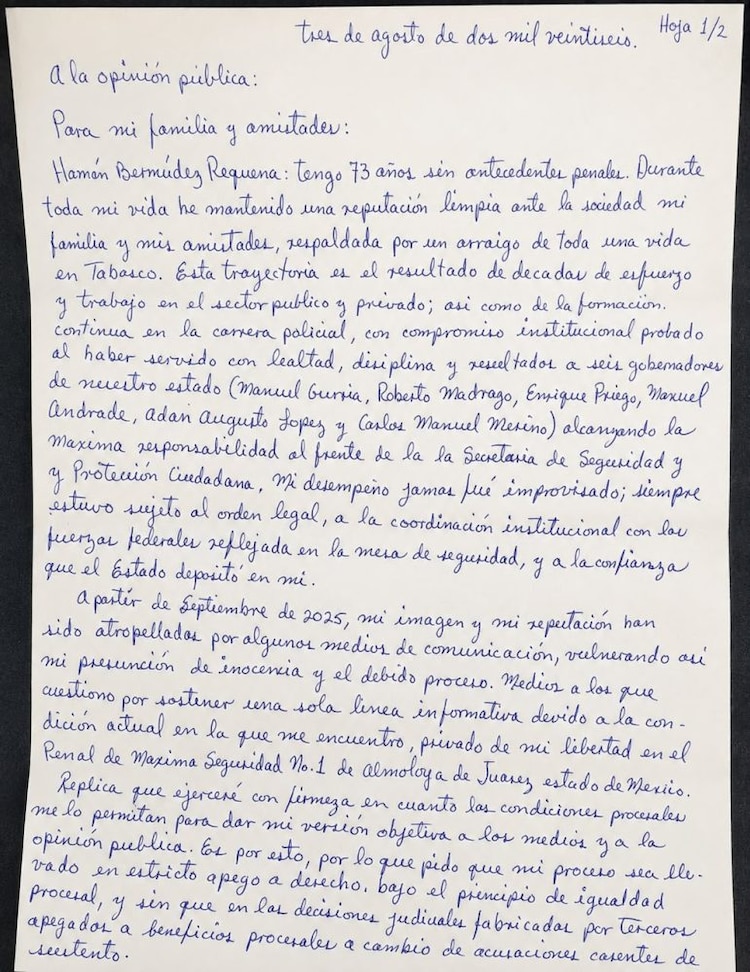 tres de agosto de dos mil veintiseis.
Hoja 1/2
A la opinión pública:
Para mi familia y amistades:
Hamán Bermúdez Requena: tengo 73 años sin antecedentes penales. Durante
toda mi vida he mantenido una reputación limpia ante la sociedad mi
familia y mis amistades, respaldada por un arraigo de toda una vida
en Tabasco. Esta trayectoria es el resultado de decadas de esfuerzo
y trabajo en el sector publico y privado; asi como de la formación.
continua en la carrera policial, con compromiso institucional probado
al haber servido con lealtad, disiplina y resultados a seis gobernadores
de nuestro estado (Manuel Gurria, Roberto Madrazo, Enrique Priego, Manuel
Andrade, Adan Augusto Lopez y Carlos Manuel Merino) alcanzando la
Maxima responsabilidad al frente de la la Secretaria de Seguridad y
y Protección Ciudadana, Mi desempeño jamas fué improvisado; siempre
estuvo sujeto al orden legal, a la coordinación institucional con las
fuerzas federales reflejada en la mesa de seguridad, y a la confianza
que el Estado depositó en mi.
A partir de Septiembre de 2025, mi imagen y mi reputación han
sido atropelladas por algunos medios de comunicación, vulnerando asi
mi presunción de inocencia y el debido proceso. Medios a los que
cuestiono por sostener una sola linea informativa devido a la con-
dición actual en la que me encuentro, privado de mi libertad en el
Penal de Maxima Seguridad No. 1 de Almoloya de Juarez estado de Mexico.
Replica que ejerceré con firmeza en cuanto las condiciones procesales
me lo permitan para dar mi versión objetiva a los medios y a la
opinión publica. Es por esto, por lo que pido que mi proceso sea lle-
vado en estricto apego a derecho. bajo el principio de igualdad
procesal, y sin que en las decisiones judiciales fabricadas por terceros
apegados a beneficios procesales a cambio de acusaciones carentes de
sustento.